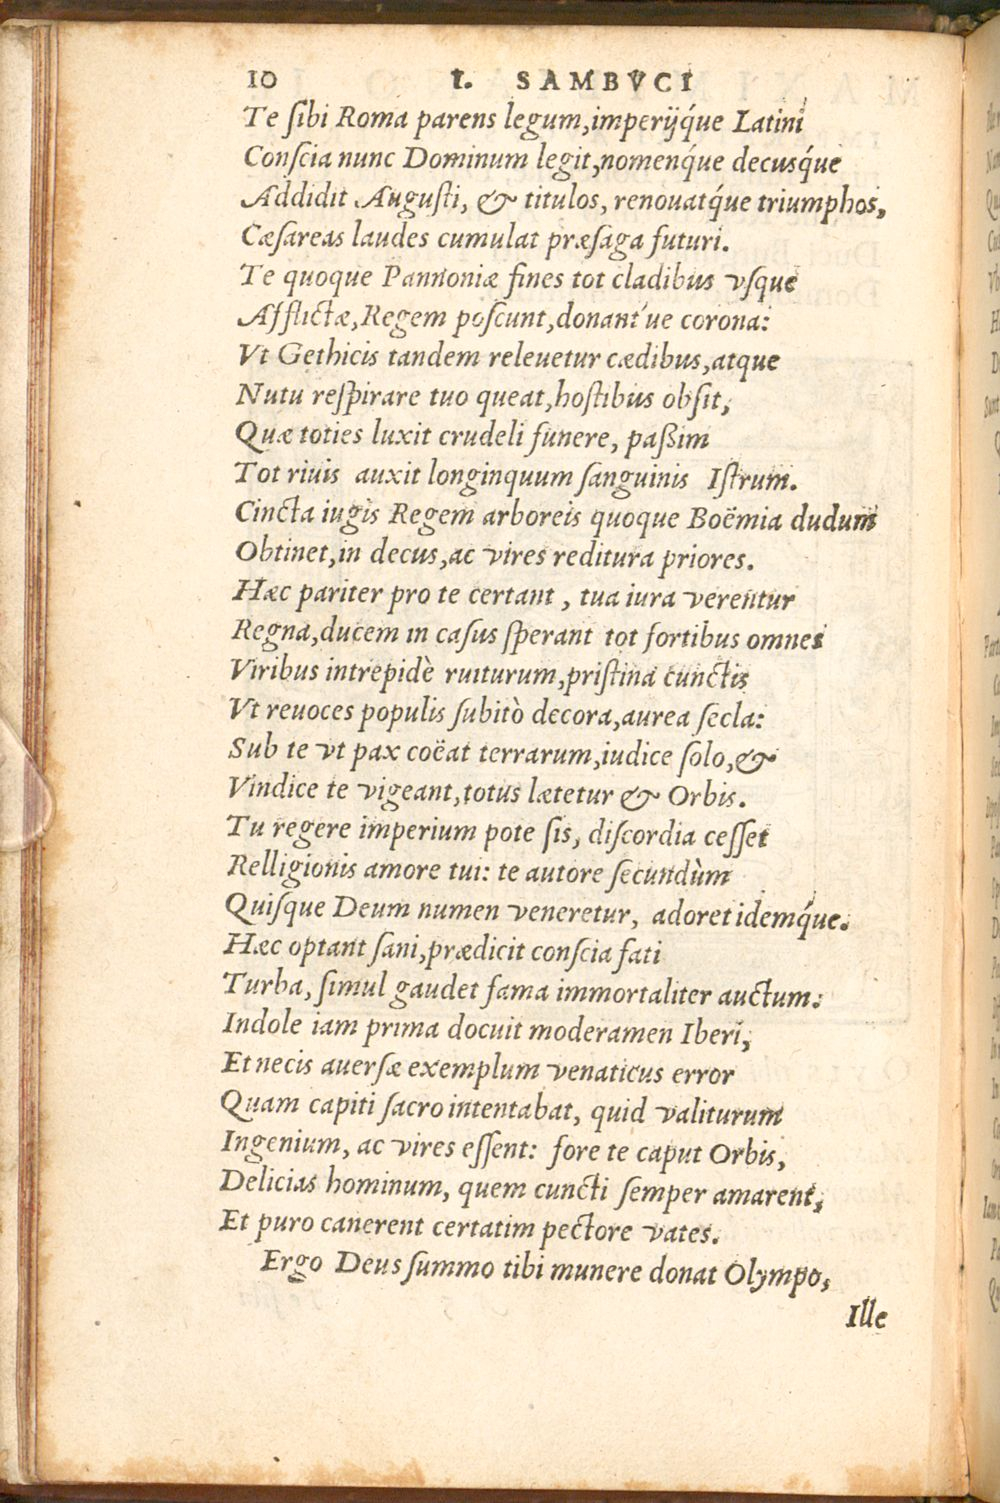 10 I. SAMBVCI
Te ſibi Roma parens legum,imperijq́ue Latini
Conſcia nunc Dominum legit,nomenq́ue decusq́ue
Addidit Auguſti, & titulos, renouatq́ue triumphos,
Cæſareas laudes cumulat præſaga futuri.
Te quoque Pannoniæ fines tot cladibus vſque
Afflictæ,Regem poſcunt,donant've corona:
Vt Gethicis tandem releuetur cædibus,atque
Nutu reſpirare tuo queat,hoſtibus obſit,
Quæ toties luxit crudeli funere, paßim
Tot riuis auxit longinquum ſanguinis Iſtrum.
Cincta iugis Regem arboreis quoque Boëmia dudum
Obtinet,in decus,ac vires reditura priores.
Hæc pariter pro te certant, tua iura verentur
Regna,ducem in caſus ſperant tot fortibus omnes
Viribus intrepidè ruiturum,priſtina cunctis
Vt reuoces populis ſubitò decora,aurea ſecla:
Sub te vt pax coëat terrarum,iudice ſolo,&
Vindice te vigeant,totus lætetur & Orbis.
Tu regere imperium pote ſis, diſcordia ceſſet
Relligionis amore tui: te autore ſecundùm
Quiſque Deum numen veneretur, adoret idemq́ue.
Hæc optant ſani,prædicit conſcia fati
Turba, ſimul gaudet fama immortaliter auctum:
Indole iam prima docuit moderamen Iberi,
Et necis auerſæ exemplum venaticus error
Quam capiti ſacro intentabat, quid valiturum
Ingenium, ac vires eſſent: fore te caput Orbis,
Delicias hominum, quem cuncti ſemper amarent,
Et puro canerent certatim pectore vates.
Ergo Deus ſummo tibi munere donat Olympo,
Ille